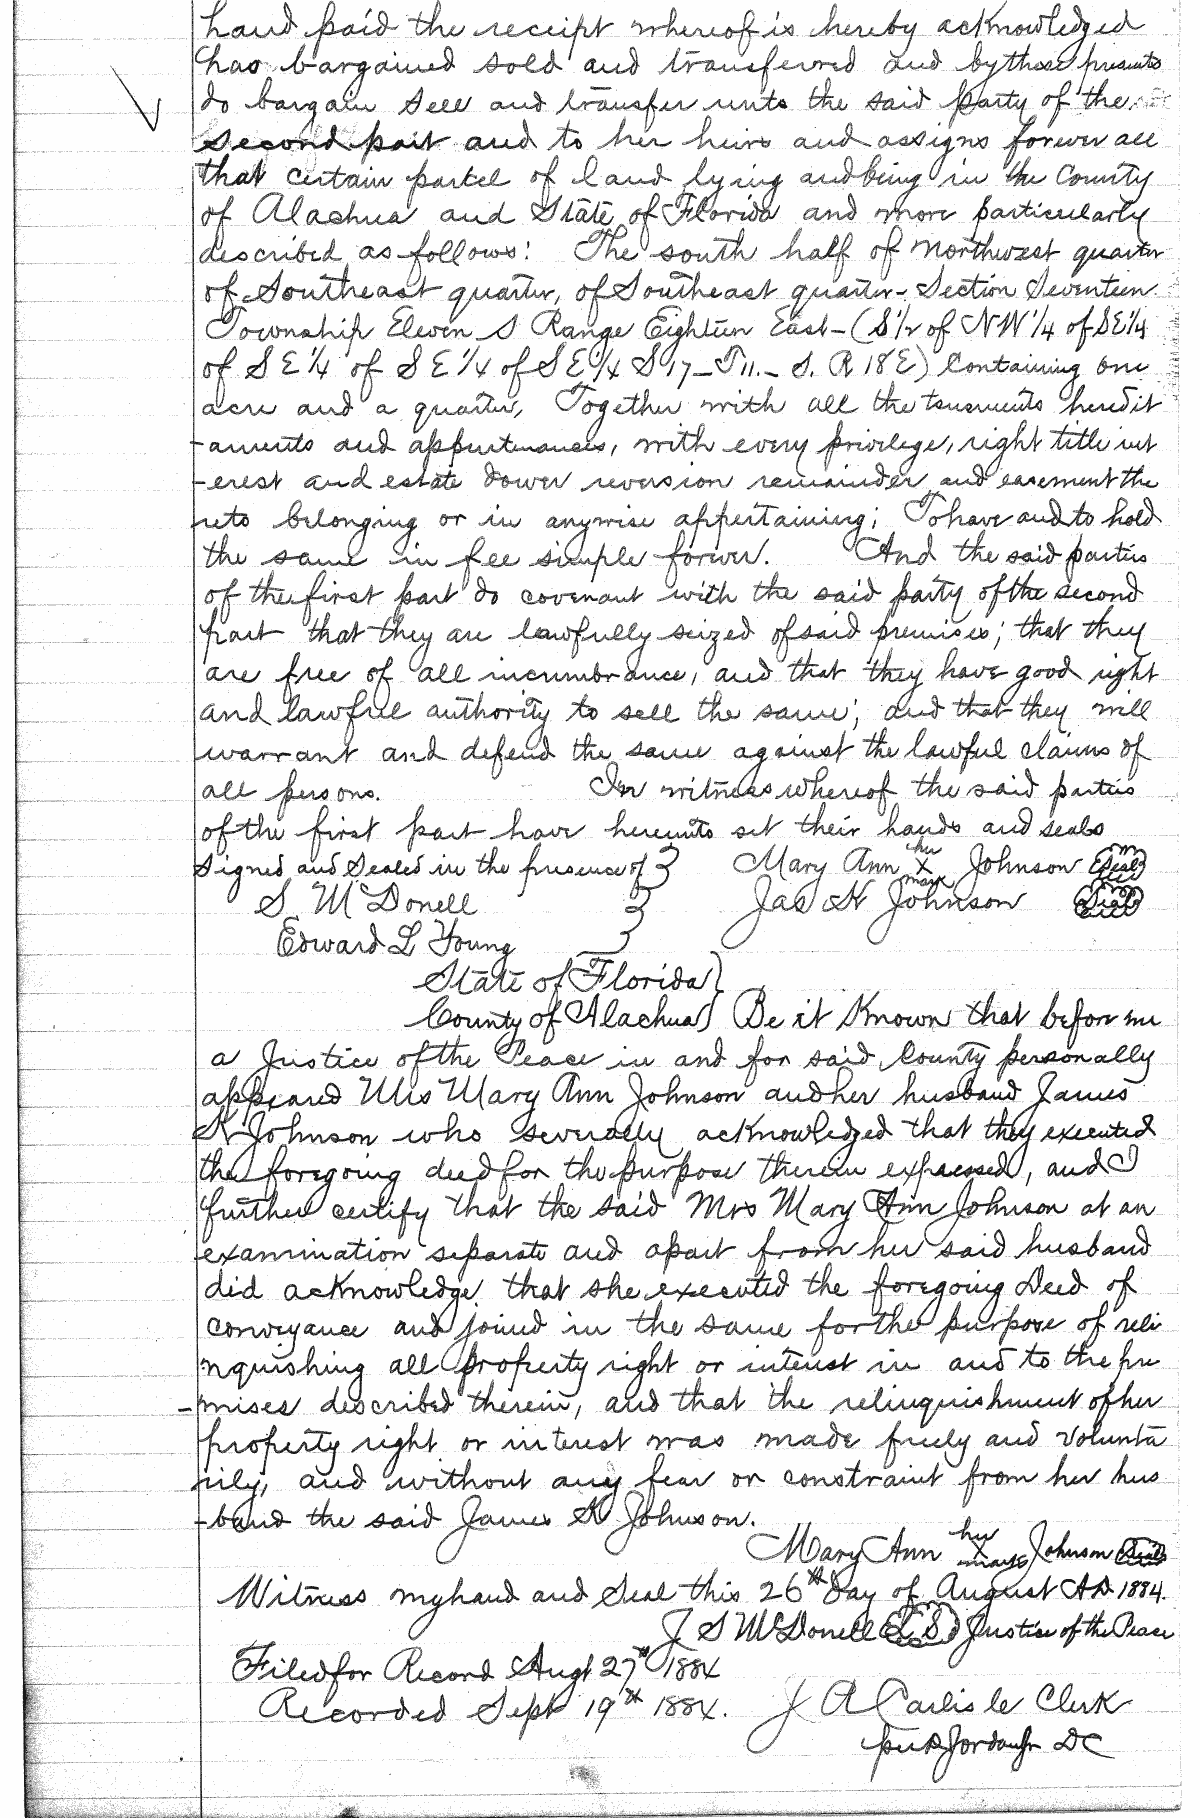 hand paid the receipt whereof is hereby acknowledged
has bargained sold and transferred and by these presents
do bargain sell and transfer unto the said party of the
second part and to her heirs and assigns forever all
that certain parcel of land lying and being in the County
of Alachua and State of Florida and more particularly
described as follows: The south half of northwest quarter
of Southeast quarter, of Southeast quarter - Section Seventeen
Township Eleven S Range Eighteen East - (S 1/2 of NW 1/4 of SE 1/4
of SE 1/4 of SE 1/4 of SE 1/4 S 17 - T 11. - S. R 18 E) Containing one
acre and a quarter, Together with all the tenements heredit
-aments and appurtenances, with every privilege, right title int
-erest and estate dower reversion remainder and easement the
reto belonging or in anywise appertaining; To have and to hold
the same in fee simple forever. And the said parties
of the first part do covenant with the said party of the second
part that they are lawfully seized of said premises; that they
are free of all incumbrance, and that they have good right
and lawful authority to sell the same; and that they will
warrant and defend the same against the lawful claims of
all persons. In witness whereof the said parties
of the first part have hereunto set their hands and seals
Signed and Sealed in the presence of } Mary Ann her X mark Johnson (Seal)
S McDonell } Jas K Johnson (Seal)
Edward L Young }
State of Florida }
County of Alachua } Be it Known that before me
a Justice of the Peace in and for said County personally
appeared Mrs Mary Ann Johnson and her husband James
K Johnson who severally acknowledged that they executed
the foregoing deed for the purpose therein expressed, and I
further certify that the said Mrs Mary Ann Johnson at an
examination separate and apart from her said husband
did acknowledge that she executed the foregoing Deed of
conveyance and joined in the same for the purpose of reli
nquishing all property right or interest in and to the pre
-mises described therein, and that the relinquishment of her
property right or interest was made freely and volunta
rily, and without any fear or constraint from her hus
-band the said James K Johnson.
Mary Ann her X mark Johnson (Seal)
Witness my hand and Seal this 26th day of August AD 1884.
J S McDonell (L S) Justice of the Peace
Filed for Record Augt 27th 1884
Recorded Sept 19th 1884. J A Carlisle Clerk
per Jordan Jr DC